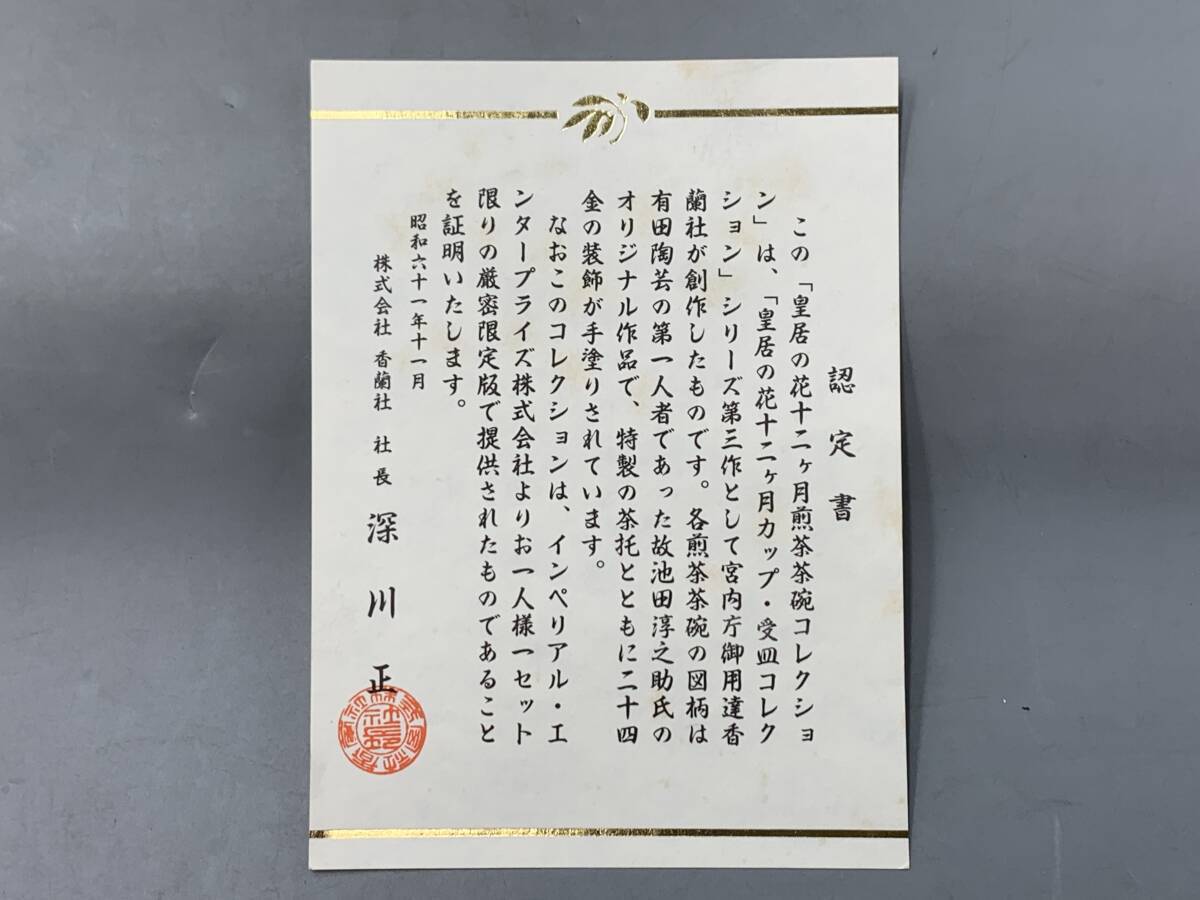 認定書
この「皇居の花十二ヶ月煎茶茶碗コレクショ
ン」は、「皇居の花十二ヶ月カップ・受皿コレク
ション」シリーズ第三作として宮内庁御用達香
蘭社が創作したものです。各煎茶茶碗の図柄は
有田陶芸の第一人者であった故池田淳之助氏の
オリジナル作品で、特製の茶托とともに二十四
金の装飾が手塗りされています。
なおこのコレクションは、インペリアル・エ
ンタープライズ株式会社よりお一人様一セット
限りの厳密限定版で提供されたものであること
を証明いたします。
昭和六十一年十一月
株式会社 香蘭社 社長 深川正